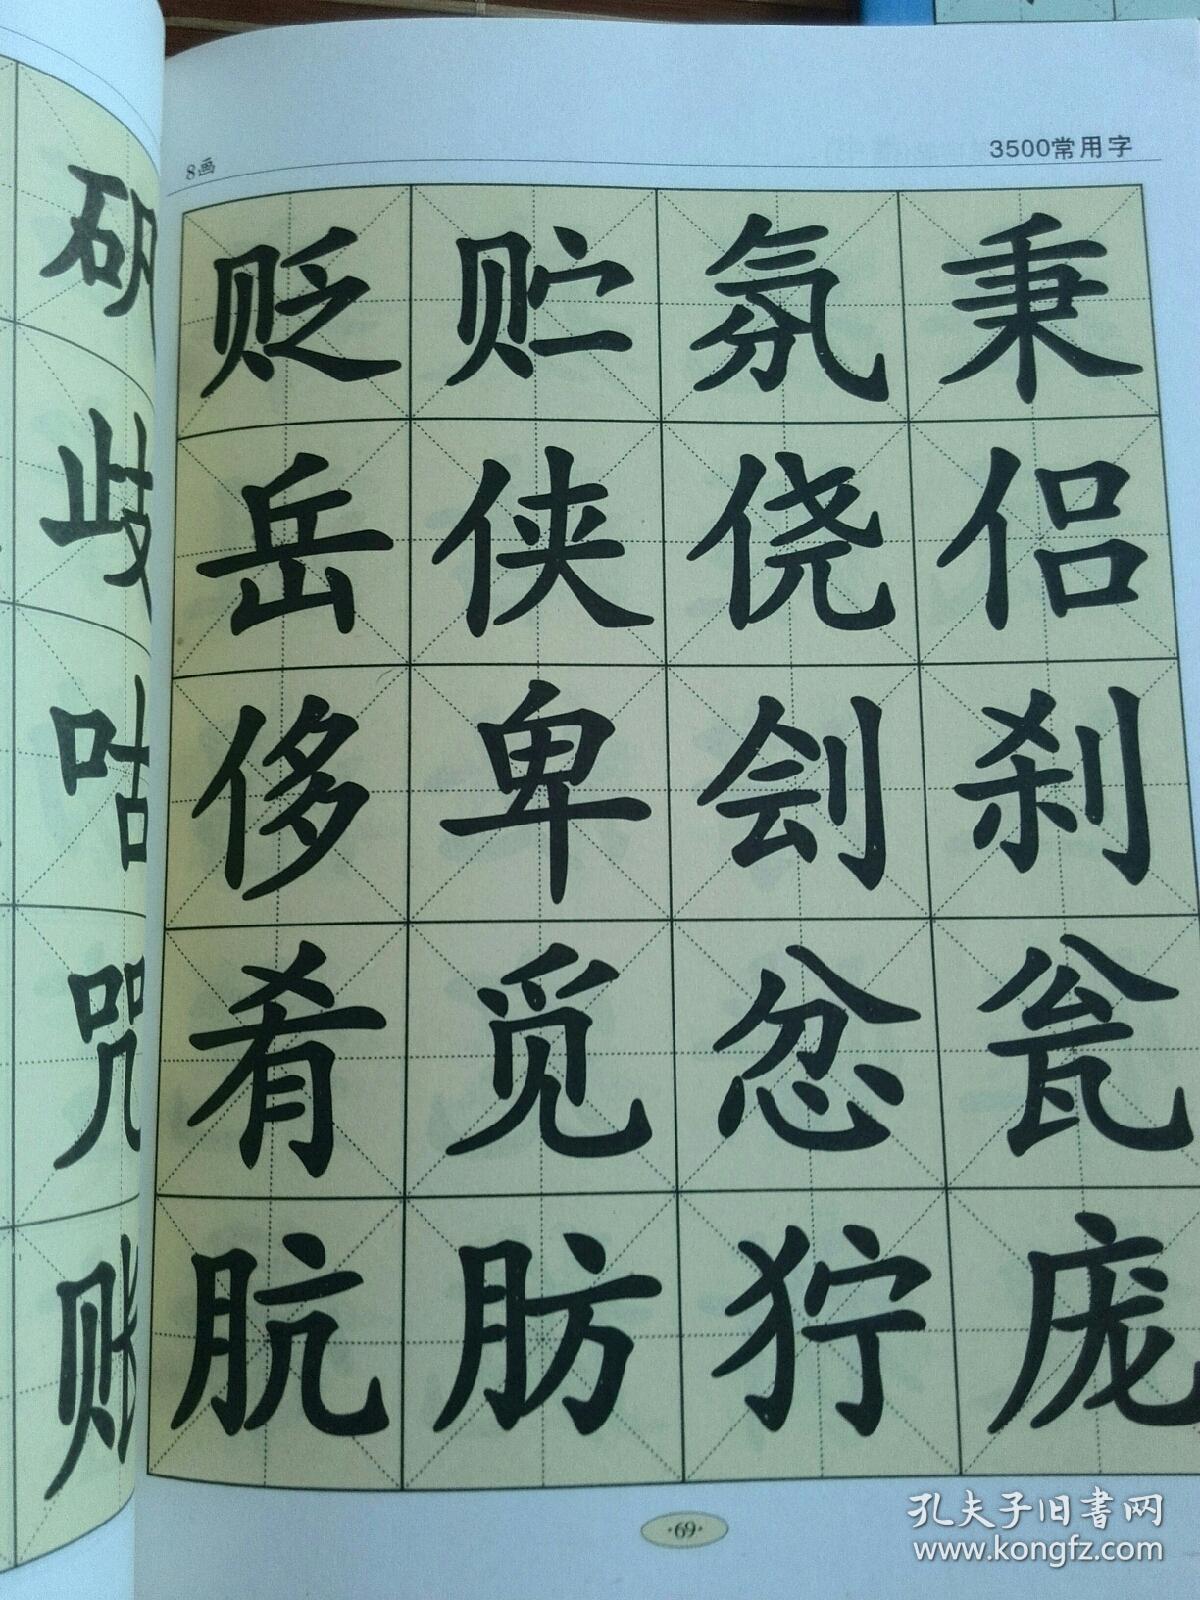 矾
歧
咕
咒
账
8画
3500常用字
贬 贮 氛 秉
岳 侠 侥 侣
侈 卑 刽 刹
肴 觅 忿 瓮
肮 肪 狞 庞
·69·
孔夫子旧书网
www.kongfz.com